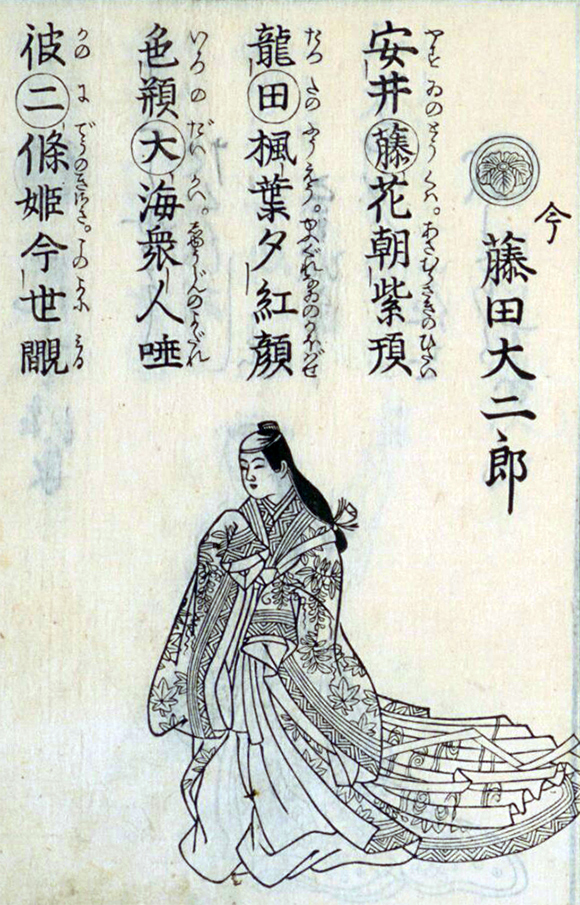 今
藤田大二郎
安井藤花朝紫
やすゐのとうくハ。あさむらさきのひたい
龍田楓葉夕紅顔
たつたのふうえう。ゆふぐれなゐのかほばせ
色大海衆人唾
いろのだいかい。しゆうじんのよだれ
彼二條姫今世
かのにでうのきさき。このよにみる